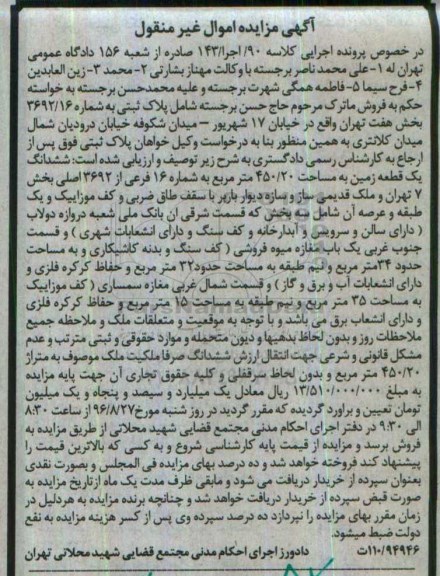 آگهی مزایده اموال غیر منقول
در خصوص پرونده اجرایی کلاسه ۹۰/ اجرا/۱۴۳ صادره از شعبه ۱۵۶ دادگاه عمومی
تهران له ۱-علی محمد ناصر برجسته با وکالت مهناز بشارتی ۲-محمد ۳-زین العابدین
۴-فرح سیما ۵-فاطمه همگی شهرت برجسته و علیه محمدحسن برجسته به خواسته
حکم به فروش ماترک مرحوم حاج حسن برجسته شامل پلاک ثبتی به شماره ۳۶۹۲/۱۶
بخش هفت تهران واقع در خیابان ۱۷ شهریور – میدان شکوفه خیابان درودیان شمال
میدان کلانتری به همین منظور بنا به درخواست وکیل خواهان پلاک ثبتی فوق پس از
ارجاع به کارشناس رسمی دادگستری به شرح زیر توصیف و ارزیابی شده است: ششدانگ
یک قطعه زمین به مساحت ۴۵۰/۲۰ متر مربع به شماره ۱۶ فرعی از ۳۶۹۲ اصلی بخش
۷ تهران و ملک قدیمی ساز و سازه دیوار باربر با سقف طاق ضربی و کف موزاییک و یک
طبقه و عرصه آن شامل سه بخش که قسمت شرقی آن بانک ملی شعبه دروازه دولاب
( دارای سالن و سرویس و آبدارخانه و کف سنگ و دارای انشعابات شهری ) و قسمت
جنوب غربی یک باب مغازه میوه فروشی ( کف سنگ و بدنه کاشیکاری و به مساحت
حدود ۳۴متر مربع و نیم طبقه به مساحت حدود۳۲ متر مربع و حفاظ کرکره فلزی و
دارای انشعابات آب و برق و گاز ) و قسمت شمال غربی مغازه سمساری ( کف موزاییک
به مساحت ۳۵ متر مربع و نیم طبقه به مساحت ۱۵ متر مربع و حفاظ کرکره فلزی
و دارای انشعاب برق می باشد و با توجه به موقعیت و متعلقات ملک و ملاحظه جمیع
ملاحظات روز و بدون لحاظ بدهیها و دیون متحمله و موارد حقوقی و ثبتی مترتب و عدم
مشکل قانونی و شرعی جهت انتقال ارزش ششدانگ صرفا ملکیت ملک موصوف به متراژ
۴۵۰/۲۰ متر مربع و بدون لحاظ سرقفلی و کلیه حقوق تجاری آن جهت پایه مزایده
به مبلغ ۱۳/۵۱۰/۰۰۰/۰۰۰ ریال معادل یک میلیارد و سیصد و پنجاه و یک میلیون
تومان تعیین و براورد گردیده که مقرر گردید در روز شنبه مورخ۹۶/۸/۲۷ از ساعت ۸:۳۰
الی ۹:۳۰ در دفتر اجرای احکام مدنی مجتمع قضایی شهید محلاتی از طریق مزایده به
فروش برسد و مزایده از قیمت پایه کارشناسی شروع و به کسی که بالاترین قیمت را
پیشنهاد کند فروخته خواهد شد و ده درصد بهای مزایده فی المجلس و بصورت نقدی
بعنوان سپرده از خریدار دریافت می شود و مابقی ظرف مدت یک ماه ازتاریخ مزایده به
صورت قبض سپرده از خریدار دریافت خواهد شد و چنانچه برنده مزایده به هردلیل در
زمان مقرر بهای مزایده را نپردازد ده درصد سپرده وی پس از کسر هزینه مزایده به نفع
دولت ضبط میشود.
۱۱۰/۹۴۹۴۶ت دادورز اجرای احکام مدنی مجتمع قضایی شهید محلاتی تهران